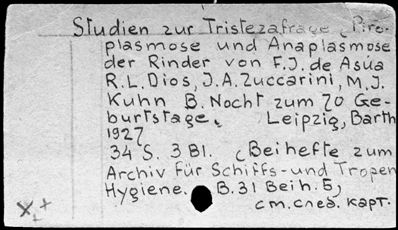 Studien zur Tristezafrage (Piro-
plasmose und Anaplasmose
der Rinder von F.J. de Asúa
R.L. Dios, J.A. Zuccarini, M.J.
Kuhn B. Nocht zum 70 Ge-
burtstage. Leipzig, Barth
1927
34 S. 3 Bl. (Beihefte zum
Archiv für Schiffs- und Tropen
Hygiene. B. 31 Beih. 5)
см. след. карт.